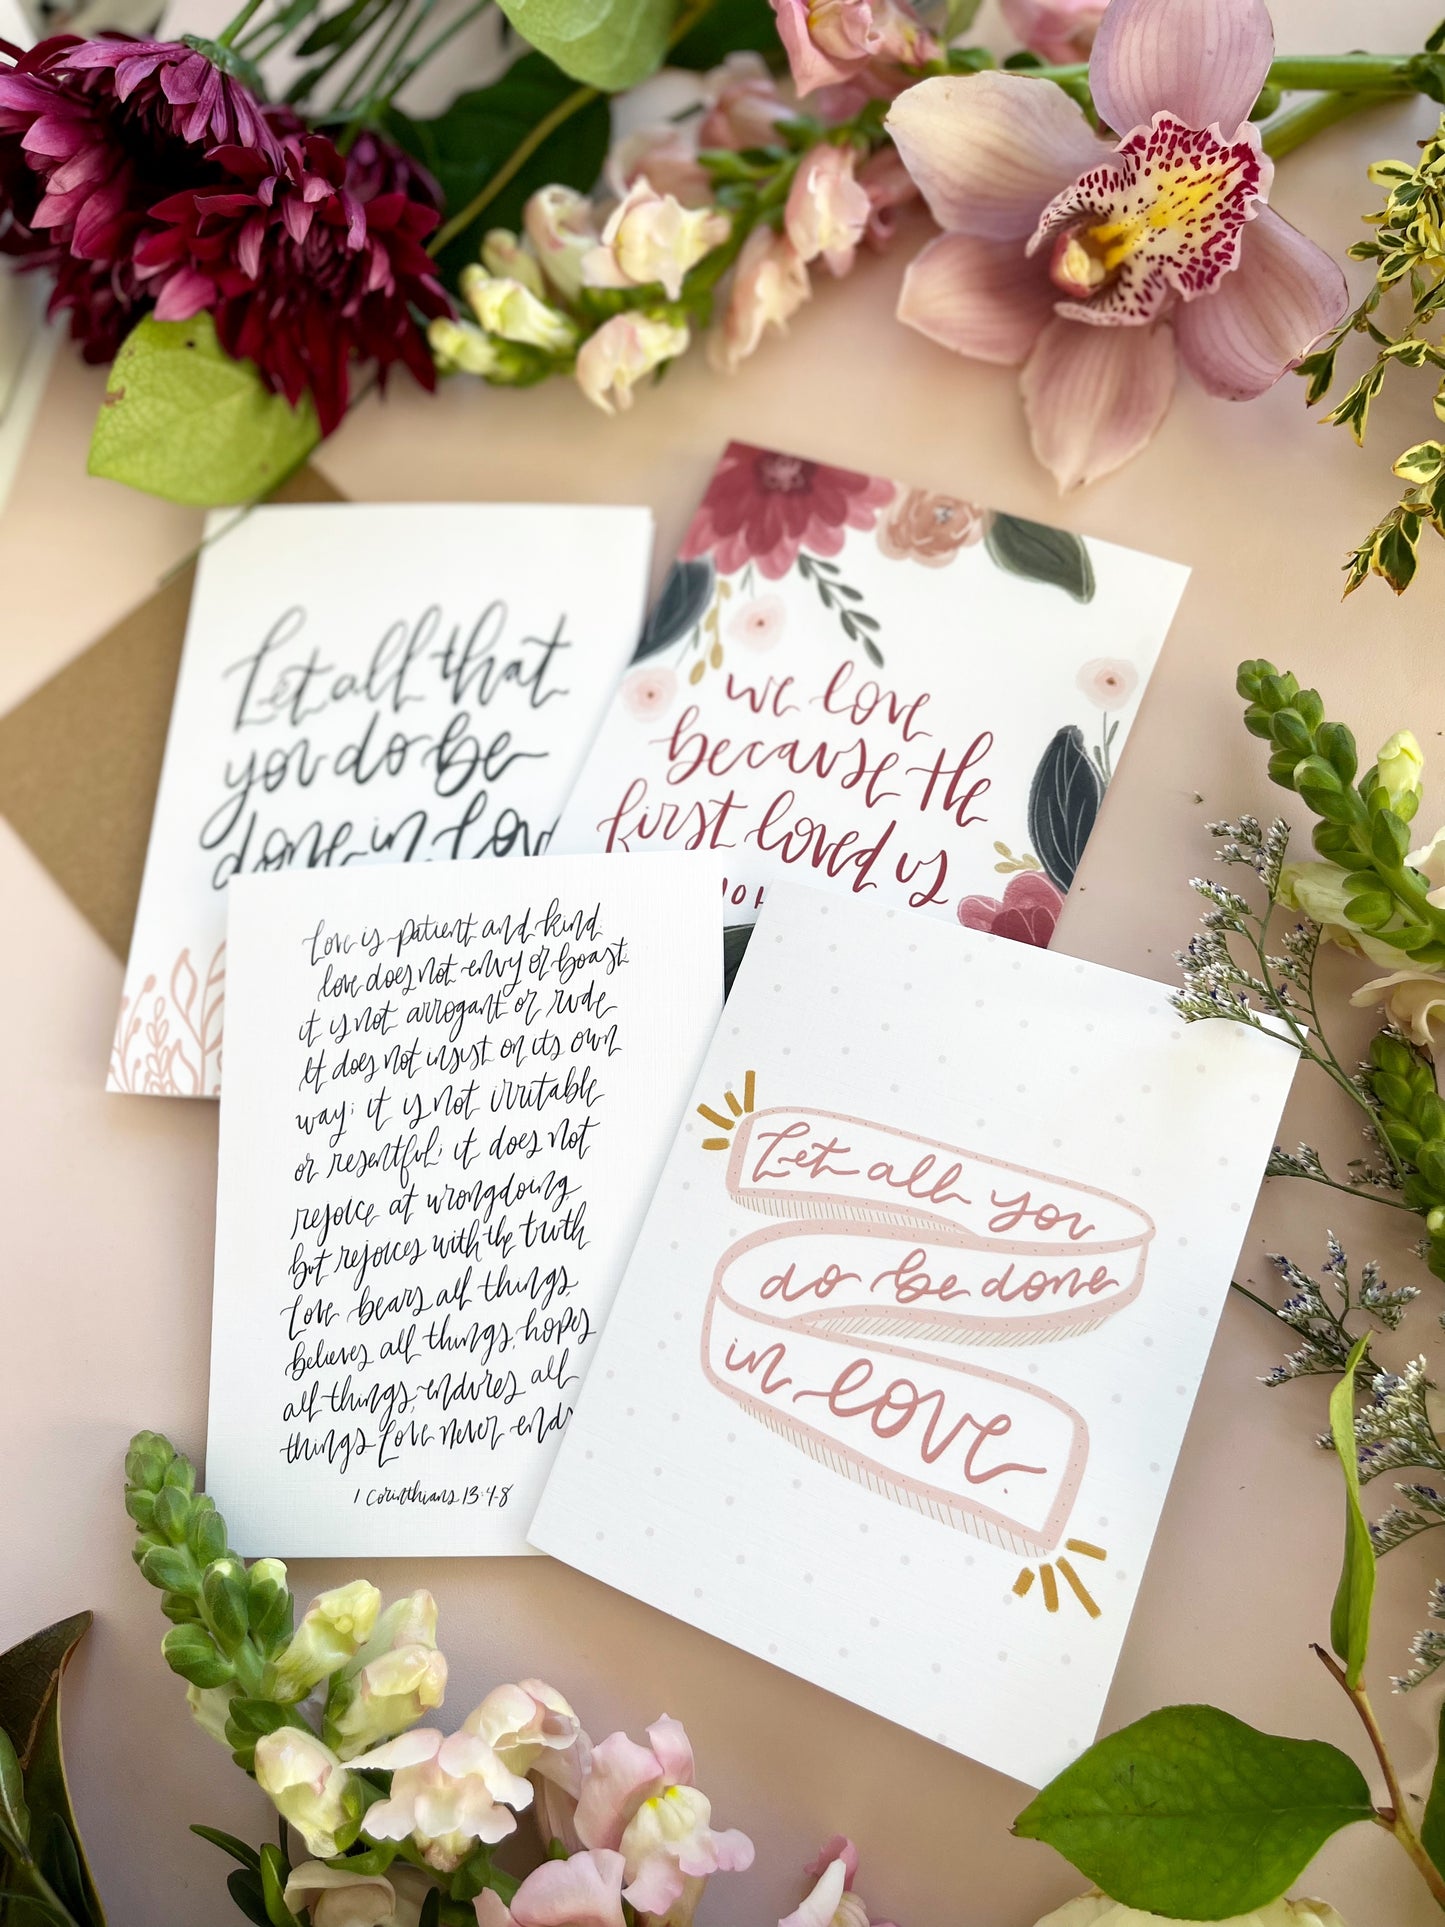 Let all that
you do be
done in love
we love
because the
first loved us
Love is patient and kind
love does not envy or boast
it is not arrogant or rude
It does not insist on its own
way; it is not irritable
or resentful; it does not
rejoice at wrongdoing
but rejoices with the truth
Love bears all things,
believes all things, hopes
all things, endures all
things Love never ends
1 Corinthians 13:4-8
Let all you
do be done
in love.